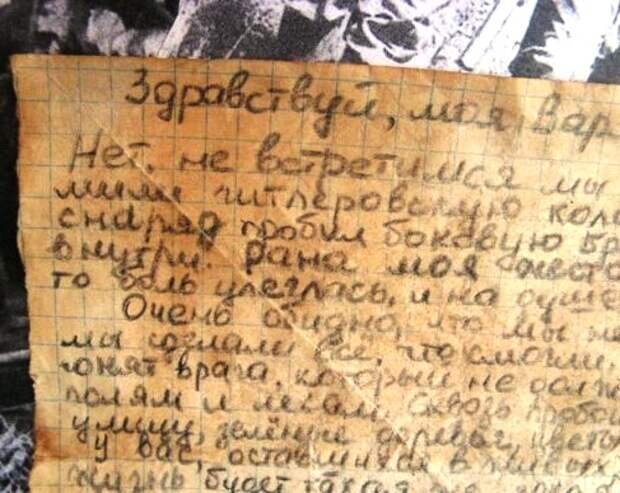 Здравствуй, моя Вар
Нет, не встретимся мы
мили гитлеровскую коло
снаряд пробил боковую бр
внутри. Рана моя жесто
то боль улеглась, и на душе
Очень обидно, что мы не
мы сделали все, что смогли.
гонят врага, который не долж
полям и лесам. Сквозь пробои
улицу, зелёные деревья, цветы
у вас, оставшихся в живых
жизнь будет такая же